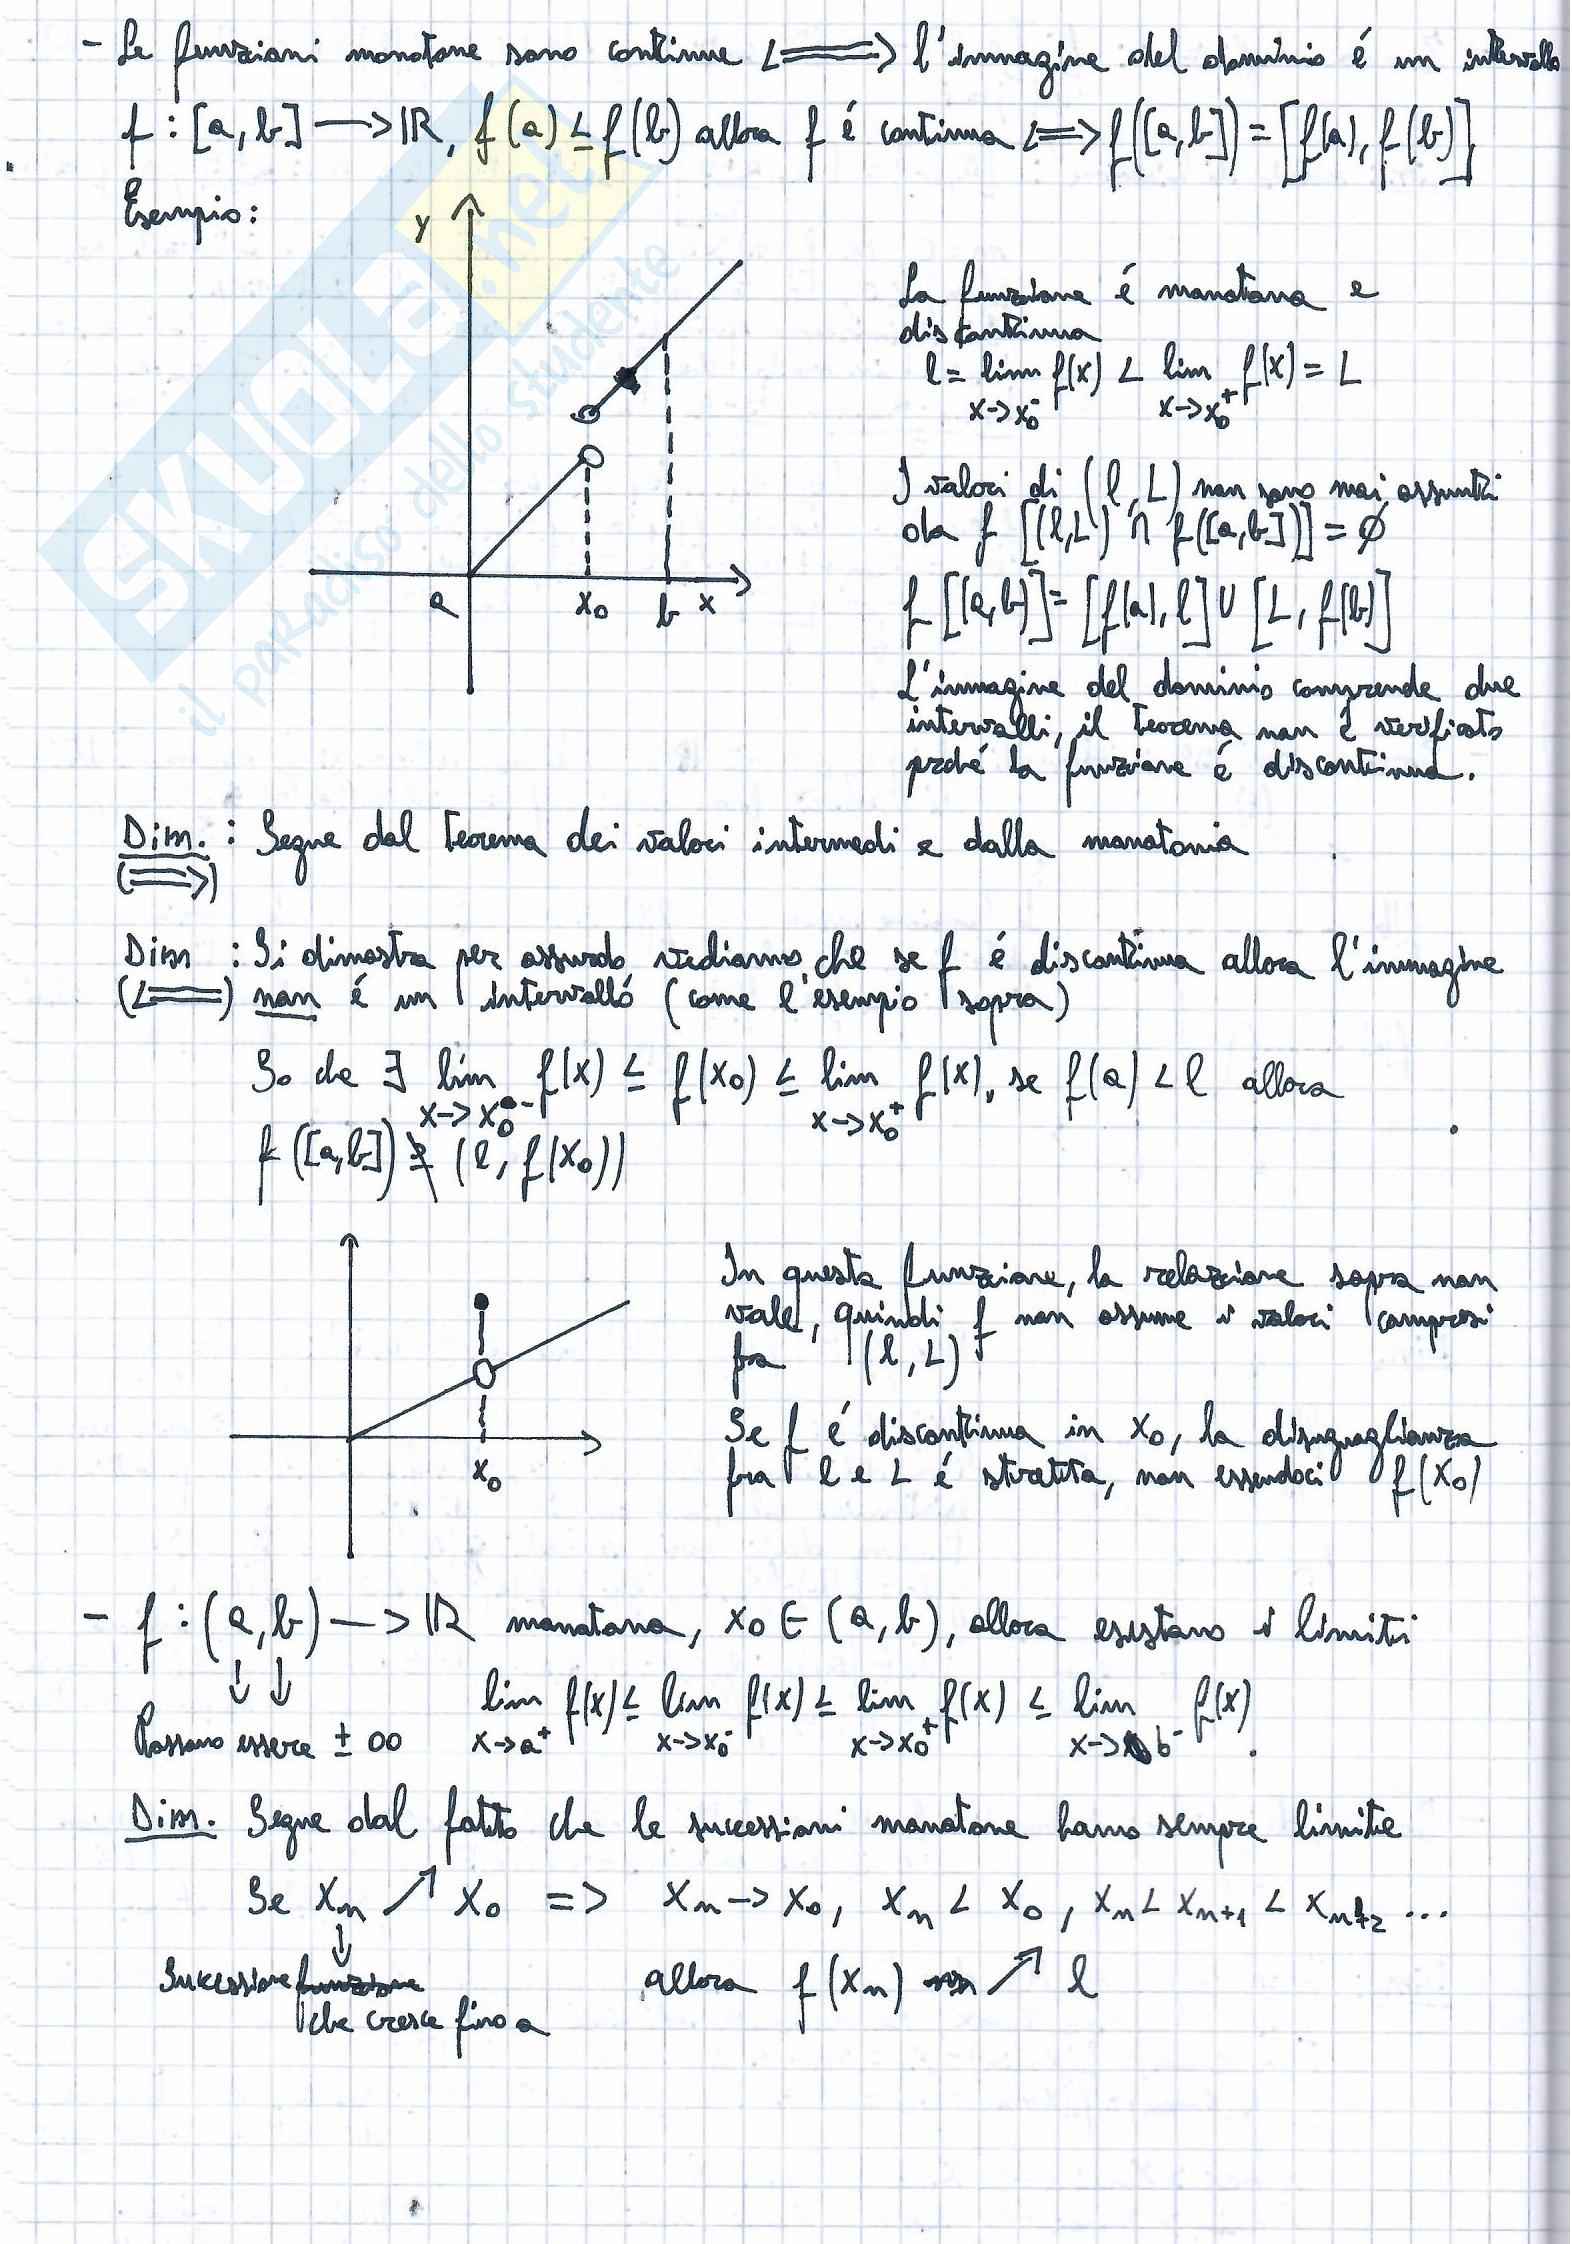 - Le funzioni monotone sono continue <=> l'immagine del dominio é un intervallo
f : [a, b] —> ℝ, f(a) ≤ f(b) allora f é continua <=> f([a, b]) = [f(a), f(b)]
Esempio:
y
a
x₀
b
x
La funzione é monotona e
discontinua
l = lim f(x) < lim f(x) = L
x->x₀⁻ x->x₀⁺
I valori di (l, L) non sono mai assunti
da f [(l,L) ∩ f([a,b])] = ∅
f [(a,b)] = [f(a), l] ∪ [L, f(b)]
L'immagine del dominio comprende due
intervalli, il teorema non é verificato
perché la funzione é discontinua.
Dim. : Segue dal teorema dei valori intermedi e dalla monotonia
(==>)
Dim : Si dimostra per assurdo, vediamo che se f é discontinua allora l'immagine
(<==) non é un intervallo (come l'esempio sopra)
So che ∃ lim f(x) ≤ f(x₀) ≤ lim f(x), se f(a) < l allora
x->x₀⁻ x->x₀⁺
f([a,b]) ⊉ (l, f(x₀))
x₀
In questa funzione, la relazione sopra non
vale, quindi f non assume i valori compresi
fra (l, L)
Se f é discontinua in x₀, la disuguaglianza
fra l e L é stretta, non essendoci f(x₀)
- f : (a, b) —> ℝ monotona, x₀ ∈ (a, b), allora esistono i limiti
↓ ↓
lim f(x) ≤ lim f(x) ≤ lim f(x) ≤ lim f(x)
Possono essere ± ∞ x->a⁺ x->x₀⁻ x->x₀⁺ x->b⁻ .
Dim. Segue dal fatto che le successioni monotone hanno sempre limite
Se xₙ ↗ x₀ => xₙ -> x₀, xₙ < x₀, xₙ < xₙ₊₁ < xₙ₊₂ ...
↓
Successione funzione allora f(xₙ) ↗ l
che cresce fino a
SKUOLA.net
il paradiso dello studente